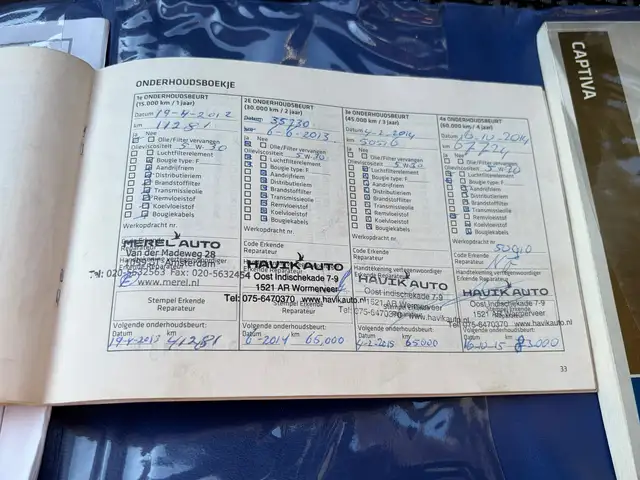 ONDERHOUDSBOEKJE
1e ONDERHOUDSBEURT
(15.000 km / 1 jaar)
Datum 19-4-2012
km 11281
Ja Nee
Olie/Filter vervangen
Olieviscositeit 5 W 30
Luchtfilterelement
Bougie type:
Aandrijfriem
Distributieriem
Brandstoffilter
Transmissieolie
Remvloeistof
Koelvloeistof
Bougiekabels
Werkopdracht nr.
MEREL AUTO
Van der Madeweg 28
Amsterdam
Fax: 020-5632454
www.merel.nl
Stempel Erkende
Reparateur
Volgende onderhoudsbeurt:
Datum km
19-4-2013 41281
2E ONDERHOUDSBEURT
(30.000 km / 2 jaar)
Datum 35730
km 6-6-2013
Ja Nee
Olie/Filter vervangen
Olieviscositeit 5W30
Luchtfilterelement
Bougie type: F
Aandrijfriem
Distributieriem
Brandstoffilter
Transmissieolie
Remvloeistof
Koelvloeistof
Bougiekabels
Werkopdracht nr.
Code Erkende
Reparateur
HAVIK AUTO
Oost Indischekade 7-9
1521 AR Wormerveer
Tel: 075-6470370 www.havikauto.nl
Stempel Erkende
Reparateur
Volgende onderhoudsbeurt:
Datum km
6-2014 65,000
3e ONDERHOUDSBEURT
(45.000 km / 3 jaar)
Datum 4-2-2014
km 50516
Ja Nee
Olie/Filter vervangen
Olieviscositeit 5W30
Luchtfilterelement
Bougie type: F
Aandrijfriem
Distributieriem
Brandstoffilter
Transmissieolie
Remvloeistof
Koelvloeistof
Bougiekabels
Werkopdracht nr.
Code Erkende
Reparateur
Handtekening vertegenwoordiger
HAVIK AUTO
Oost Indischekade 7-9
1521 AR Wormerveer
Tel: 075-6470370 www.havikauto.nl
Volgende onderhoudsbeurt:
Datum km
4-2-2015 65.000
4e ONDERHOUDSBEURT
(60.000 km / 4 jaar)
Datum 16-10-2014
km 67726
Ja Nee
Olie/Filter vervangen
Olieviscositeit 5W30
Luchtfilterelement
Bougie type: F
Aandrijfriem
Distributieriem
Brandstoffilter
Transmissieolie
Remvloeistof
Koelvloeistof
Bougiekabels
Werkopdracht nr.
Code Erkende
Reparateur
Handtekening vertegenwoordiger
HAVIK AUTO
Oost Indischekade 7-9
1521 AR Wormerveer
Tel: 075-6470370 www.havikauto.nl
Volgende onderhoudsbeurt:
Datum km
16-10-15 83.000
33
CAPTIVA